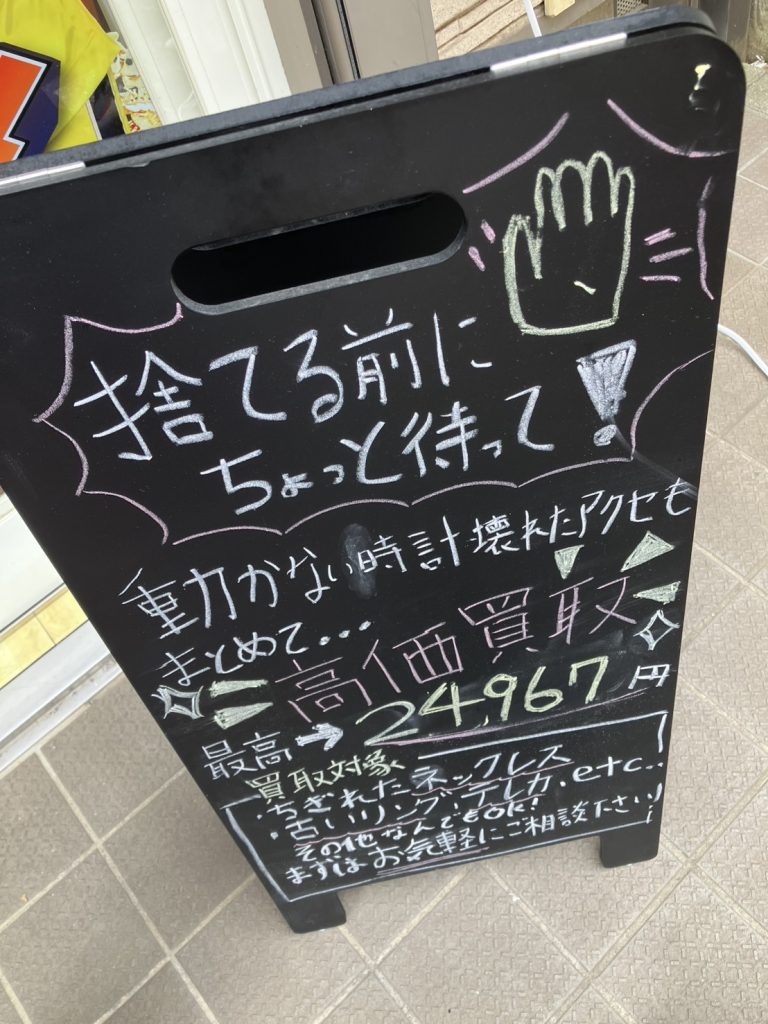 捨てる前に
ちょっと待って!
動かない時計壊れたアクセも
まとめて...高価買取
最高→24,967円
買取対象
・ちぎれたネックレス
・古いリング・テレカ・etc..
その他なんでもOK!
まずはお気軽にご相談下さい!